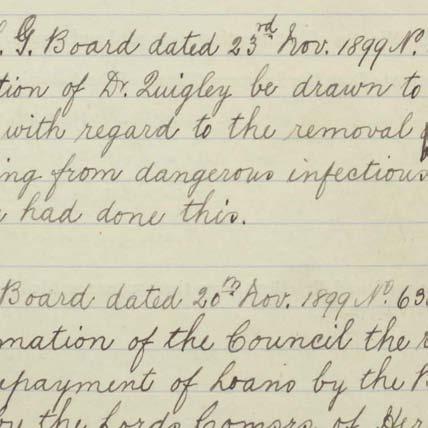 . G. Board dated 23rd Nov. 1899 No.
tion of Dr. Quigley be drawn to
with regard to the removal
ing from dangerous infectious
had done this.
Board dated 20th Nov. 1899 No. 63
mation of the Council the
epayment of Loans by the
by the Lords Comsrs. of Her